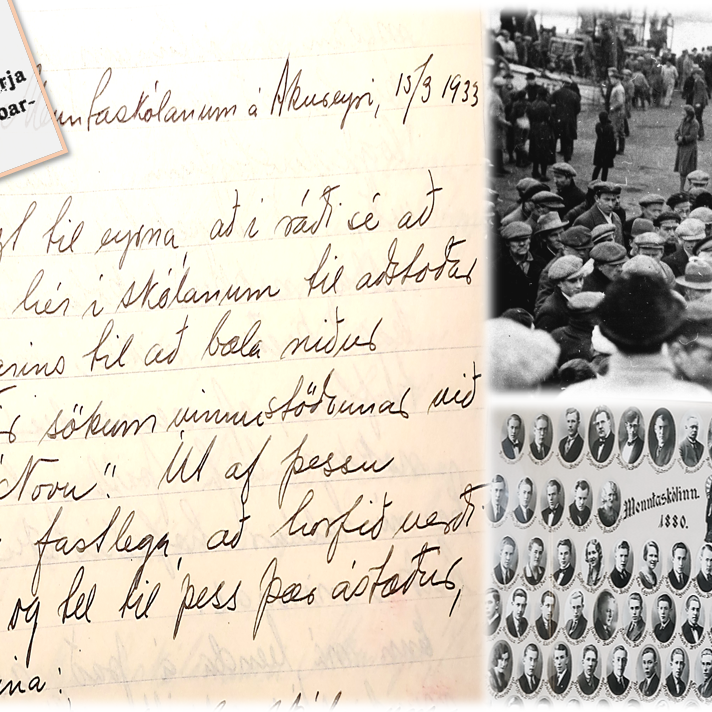 rja
par-
Menntaskólanum á Akureyri, 15/3 1933
til eyrna, að í ráði sé að
hér í skólanum til aðstoðar
til að bæla niður
sökum vinnustöðvunar við
"Novu". Út af þessu
fastlega, að horfið verði
og tel til þess þær ástæður,
Menntaskólinn.
1880.